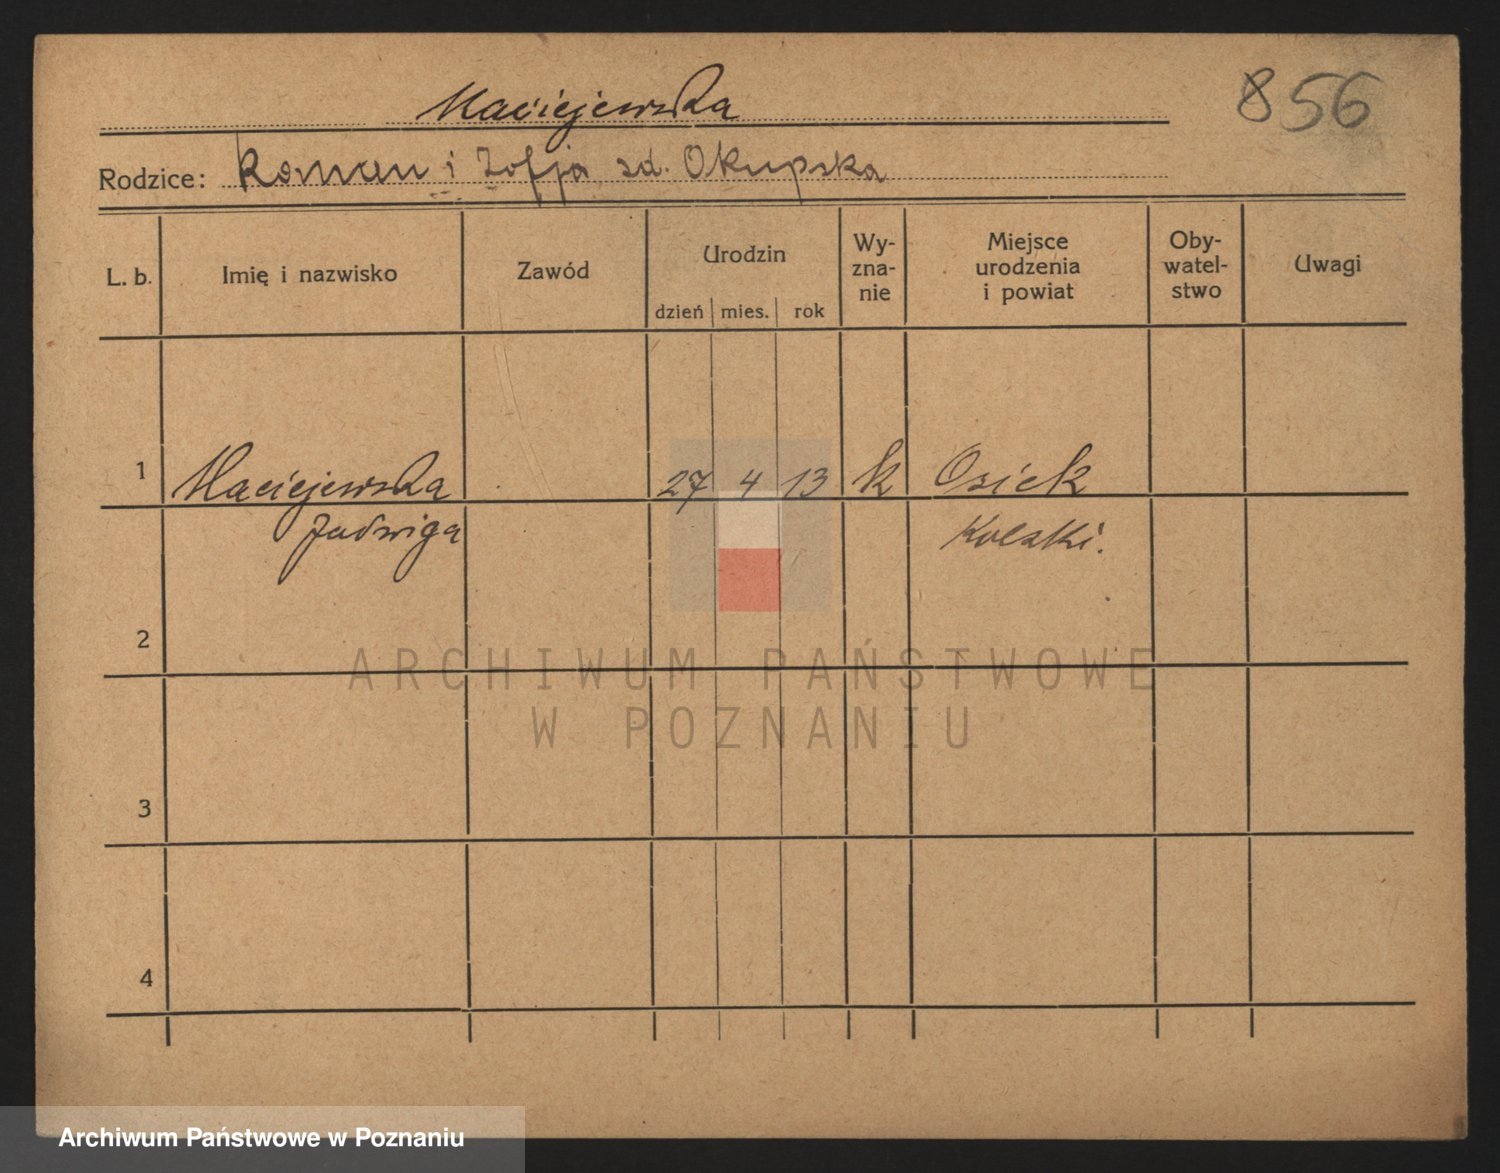 Maciejewska
856
Rodzice: Roman i Zofja zd. Okupska
L. b.
Imię i nazwisko
Zawód
Urodzin
dzień mies. rok
Wy-
zna-
nie
Miejsce
urodzenia
i powiat
Oby-
watel-
stwo
Uwagi
1 Maciejewska 27 4 13 k Osiek
Jadwiga Kolski.
2
ARCHIWUM PAŃSTWOWE
W POZNANIU
3
4
Archiwum Państwowe w Poznaniu